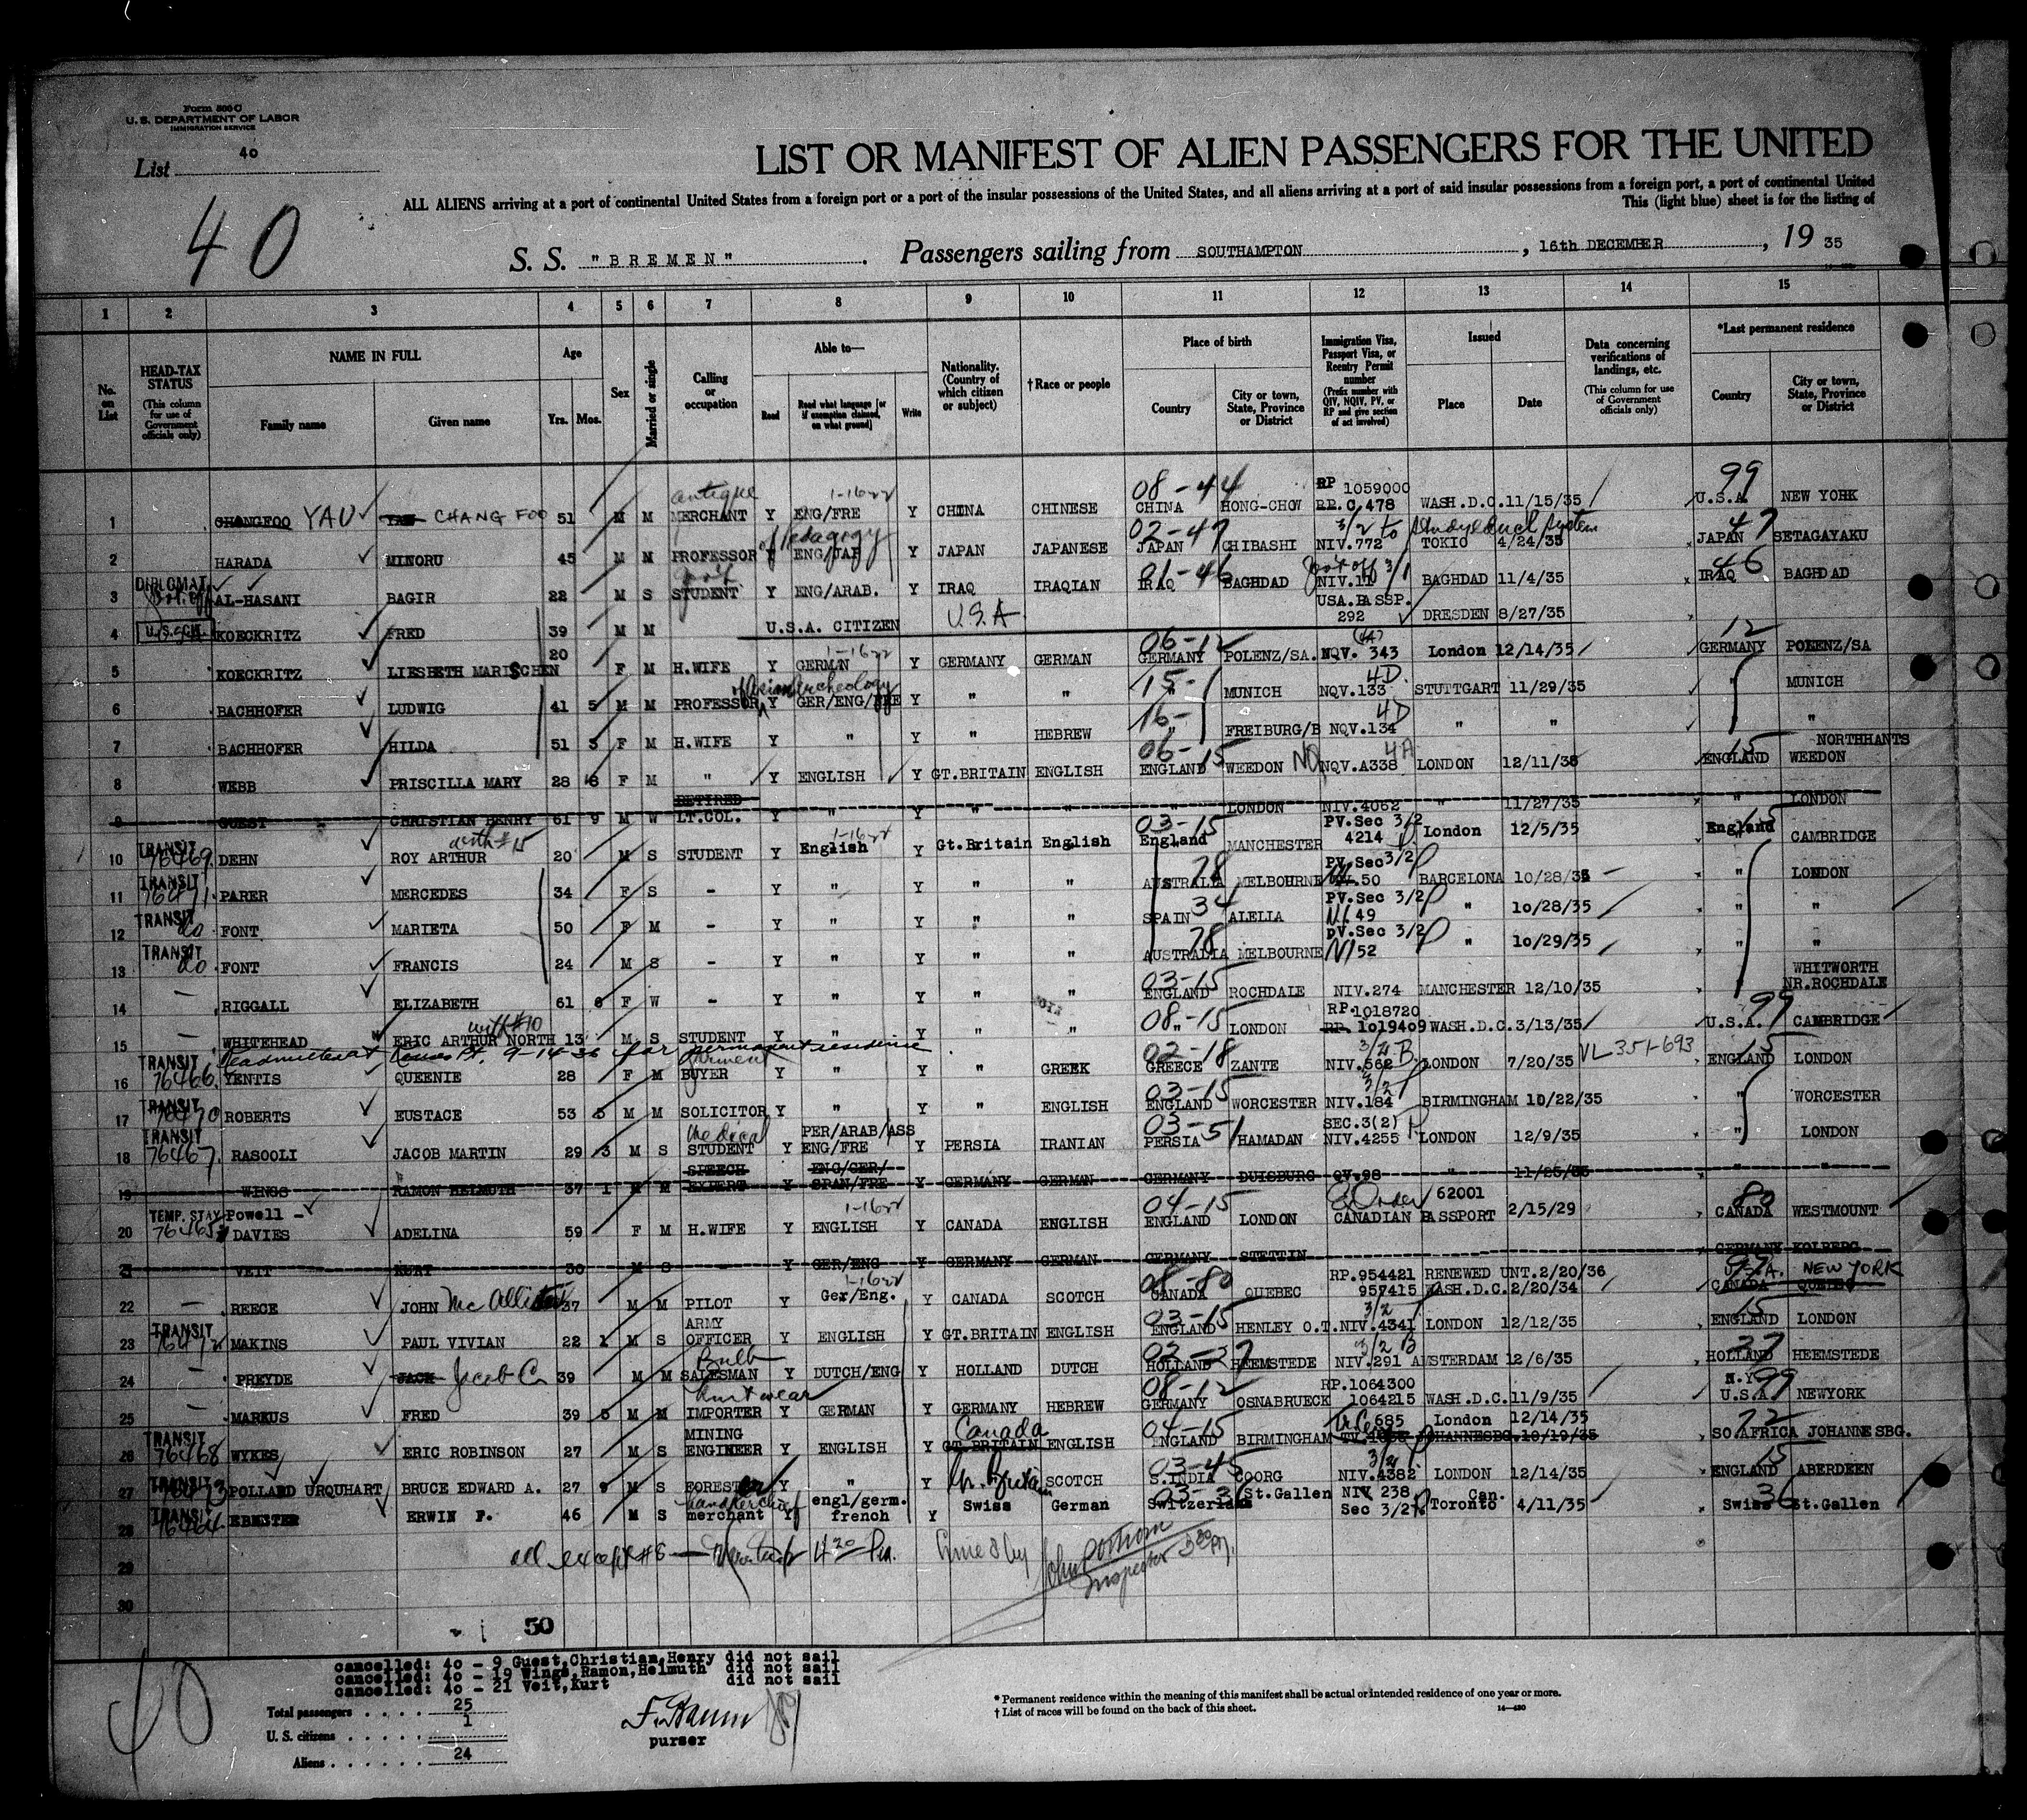 Form 500 C
U. S. DEPARTMENT OF LABOR
IMMIGRATION SERVICE
List 40
40
LIST OR MANIFEST OF ALIEN PASSENGERS FOR THE UNITED
ALL ALIENS arriving at a port of continental United States from a foreign port or a port of the insular possessions of the United States, and all aliens arriving at a port of said insular possessions from a foreign port, a port of continental United
This (light blue) sheet is for the listing of
S. S. "BREMEN". Passengers sailing from SOUTHAMPTON, 16th DECEMBER, 19 35
1 2 3 4 5 6 7 8 9 10 11 12 13 14 15
No. on List
HEAD-TAX STATUS (This column for use of Government officials only)
NAME IN FULL Family name Given name
Age Yrs. Mos.
Sex
Married or single
Calling or occupation
Able to— Read Read what language [or if exemption claimed, on what ground] Write
Nationality. (Country of which citizen or subject)
†Race or people
Place of birth Country City or town, State, Province or District
Immigration Visa, Passport Visa, or Reentry Permit number (Prefix number with QIV, NQIV, PV, or RP and give section of act involved)
Issued Place Date
Data concerning verifications of landings, etc. (This column for use of Government officials only)
*Last permanent residence Country City or town, State, Province or District
antique 1-16 08-44 RP 1059000 99
1 CHONGFOO YAU YAU CHANG FOO 51 M M MERCHANT Y ENG/FRE Y CHINA CHINESE CHINA HONG-CHOW RP.C.478 WASH.D.C. 11/15/35 U.S.A. NEW YORK
of Pedagogy 02-47 3/2 to study educl system 47
2 HARADA MINORU 45 M M PROFESSOR Y ENG/JAP Y JAPAN JAPANESE JAPAN CHIBASHI NIV.772 TOKIO 4/24/35 JAPAN SETAGAYAKU
DIPLOMAT govt 01-46 govt off 3/1 46
3 AL-HASANI BAGIR 22 M S STUDENT Y ENG/ARAB. Y IRAQ IRAQIAN IRAQ BAGHDAD NIV.11 BAGHDAD 11/4/35 IRAQ BAGHDAD
4 U.S.CIT. KOECKRITZ FRED 39 M M U.S.A. CITIZEN U.S.A USA.PASSP. 292 DRESDEN 8/27/35
1-16 06-12 (4A) 12
5 KOECKRITZ LIESBETH MARISCHEN 20 F M H.WIFE Y GERMAN Y GERMANY GERMAN GERMANY POLENZ/SA. NQV. 343 London 12/14/35 GERMANY POLENZ/SA
of Asian Archeology 15- 4D.
6 BACHHOFER LUDWIG 41 5 M M PROFESSOR Y GER/ENG/FRE Y " " " MUNICH NQV.133 STUTTGART 11/29/35 MUNICH
16- 4D
7 BACHHOFER HILDA 51 3 F M H.WIFE Y " Y " HEBREW " FREIBURG/B NQV.134 " " "
06-15 4A 15 NORTHHANTS
8 WEBB PRISCILLA MARY 28 6 F M " Y ENGLISH Y GT.BRITAIN ENGLISH ENGLAND WEEDON NQV.A338 LONDON 12/11/35 ENGLAND WEEDON
9 GUEST CHRISTIAN HENRY 61 9 M W RETIRED LT.COL. Y " Y " " " LONDON NIV.4062 " 11/27/35 " LONDON
with #15 1-16 03-15 PV.Sec 3/2 15
10 TRANSIT 76469 DEHN ROY ARTHUR 20 M S STUDENT Y English Y Gt.Britain English England MANCHESTER 4214 London 12/5/35 England CAMBRIDGE
78 PV.Sec 3/2
11 TRANSIT 76471 PARER MERCEDES 34 F S - Y " Y " " AUSTRALIA MELBOURNE 50 BARCELONA 10/28/35 " LONDON
34 PV.Sec 3/2
12 TRANSIT do FONT MARIETA 50 F M - Y " Y " " SPAIN ALELLA 49 " 10/28/35 " "
78 PV.Sec 3/2
13 TRANSIT do FONT FRANCIS 24 M S - Y " Y " " AUSTRALIA MELBOURNE 52 " 10/29/35 " "
03-15
14 RIGGALL ELIZABETH 61 6 F W - Y " Y " " ENGLAND ROCHDALE NIV.274 MANCHESTER 12/10/35 " WHITWORTH NR.ROCHDALE
with #10 08-15 RP.1018720 99
15 WHITEHEAD ERIC ARTHUR NORTH 13 M S STUDENT Y " Y " " " LONDON RP 1019409 WASH.D.C. 3/13/35 U.S.A. CAMBRIDGE
Readmitted at Rouses Pt. 9-14-36 for permanent residence
garment 02-18 3/2 B VL 351-693 15
16 TRANSIT 76466 YENTIS QUEENIE 28 F M BUYER Y " Y " GREEK GREECE ZANTE NIV.562 LONDON 7/20/35 ENGLAND LONDON
03-15 3/2
17 TRANSIT 76470 ROBERTS EUSTACE 53 5 M M SOLICITOR Y " Y " ENGLISH ENGLAND WORCESTER NIV.184 BIRMINGHAM 10/22/35 " WORCESTER
medical 03-51 SEC.3(2)
18 TRANSIT 76467 RASOOLI JACOB MARTIN 29 3 M S STUDENT Y PER/ARAB/ASS ENG/FRE Y PERSIA IRANIAN PERSIA HAMADAN NIV.4255 LONDON 12/9/35 " LONDON
19 WINGS RAMON HELMUTH 37 1 M M SPEECH EXPERT Y ENG/GER/ SPAN/FRE Y GERMANY GERMAN GERMANY DUISBURG QV.98 " 11/25/35 " "
1-16 04-15 Ex Order 62001 80
20 TEMP. STAY 76465 Powell - DAVIES ADELINA 59 F M H.WIFE Y ENGLISH Y CANADA ENGLISH ENGLAND LONDON CANADIAN PASSPORT 2/15/29 CANADA WESTMOUNT
21 VEIT KURT 30 M S - Y GER/ENG Y GERMANY GERMAN GERMANY STETTIN GERMANY KOLBERG
1-16 08-80 RP.954421 RENEWED UNT.2/20/36 U.S.A. NEW YORK
22 REECE JOHN McAllister 37 M M PILOT Y Ger/Eng. Y CANADA SCOTCH CANADA QUEBEC 957415 WASH.D.C. 2/20/34 CANADA QUEBEC
03-15 3/2 15
23 TRANSIT 76472 MAKINS PAUL VIVIAN 22 1 M S ARMY OFFICER Y ENGLISH Y GT.BRITAIN ENGLISH ENGLAND HENLEY O.T. NIV.4341 LONDON 12/12/35 ENGLAND LONDON
Bulb 02-27 3/2 B 27
24 PREYDE JACK Jacob C 39 M M SALESMAN Y DUTCH/ENG Y HOLLAND DUTCH HOLLAND HEEMSTEDE NIV.291 AMSTERDAM 12/6/35 HOLLAND HEEMSTEDE
knit wear 08-12 RP.1064300 N.Y. 99
25 MARKUS FRED 39 5 M M IMPORTER Y GERMAN Y GERMANY HEBREW GERMANY OSNABRUECK 1064215 WASH.D.C. 11/9/35 U.S.A. NEWYORK
Canada 04-15 685 London 12/14/35 72
26 TRANSIT 76468 WYKES ERIC ROBINSON 27 M S MINING ENGINEER Y ENGLISH Y GT.BRITAIN ENGLISH ENGLAND BIRMINGHAM JOHANNESBG. 10/19/35 SO.AFRICA JOHANNESBG.
03-45 3/2 15
27 TRANSIT POLLARD URQUHART BRUCE EDWARD A. 27 9 M S FORESTER Y " Y Gr. Britain SCOTCH S.INDIA COORG NIV.4382 LONDON 12/14/35 ENGLAND ABERDEEN
handkerchief 03-36 36
28 TRANSIT 76464 EBNETER ERWIN P. 46 M S merchant Y engl/germ. french Y Swiss German Switzerland St.Gallen NIV 238 Sec 3/2 Can. Toronto 4/11/35 Swiss St.Gallen
29 all except #8 4 20 Pm. John Inspector
30
50
cancelled: 40 - 9 Guest,Christian,Henry did not sail
cancelled: 40 - 19 Wings,Ramon,Helmuth did not sail
cancelled: 40 - 21 Veit,Kurt did not sail
Total passengers . . . . 25
U. S. citizens . . . . . 1
Aliens . . . . . . 24
purser
40
* Permanent residence within the meaning of this manifest shall be actual or intended residence of one year or more.
† List of races will be found on the back of this sheet.